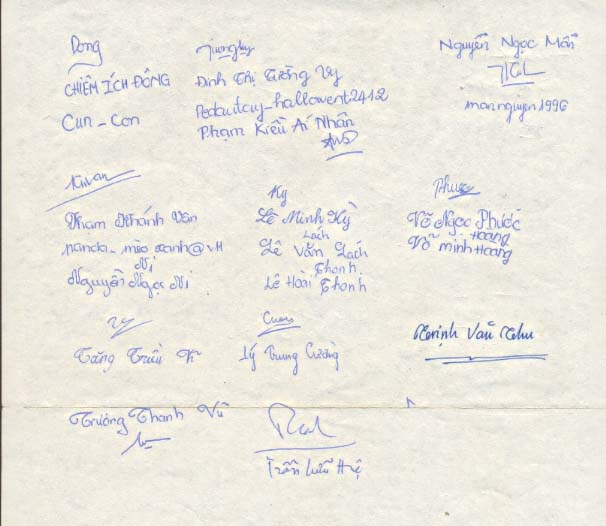 Dong
CHIÊM ÍCH ĐÔNG
Cun - Con
Tuongvy
Đinh Thị Tường Vy
Pedautay_hallowent2412
Phạm Kiều Ái Nhân
Nguyễn Ngọc Mẩn
mannguyen1996
Phạm Khánh Vân
panda_mio xanh@vH
Ni
Nguyễn Ngọc Ni
Ky
Lê Minh Kỳ
Lách
Lê Văn Lách
Thanh
Lê Hoài Thanh
Phuoc
Võ Ngọc Phước
Hoang
Võ minh Hoang
Vy
Tăng Triều Vĩ
Cuong
Lý Trung Cường
Trịnh Văn Nhu
Trương Thanh Vũ
Trần Lưu Huệ